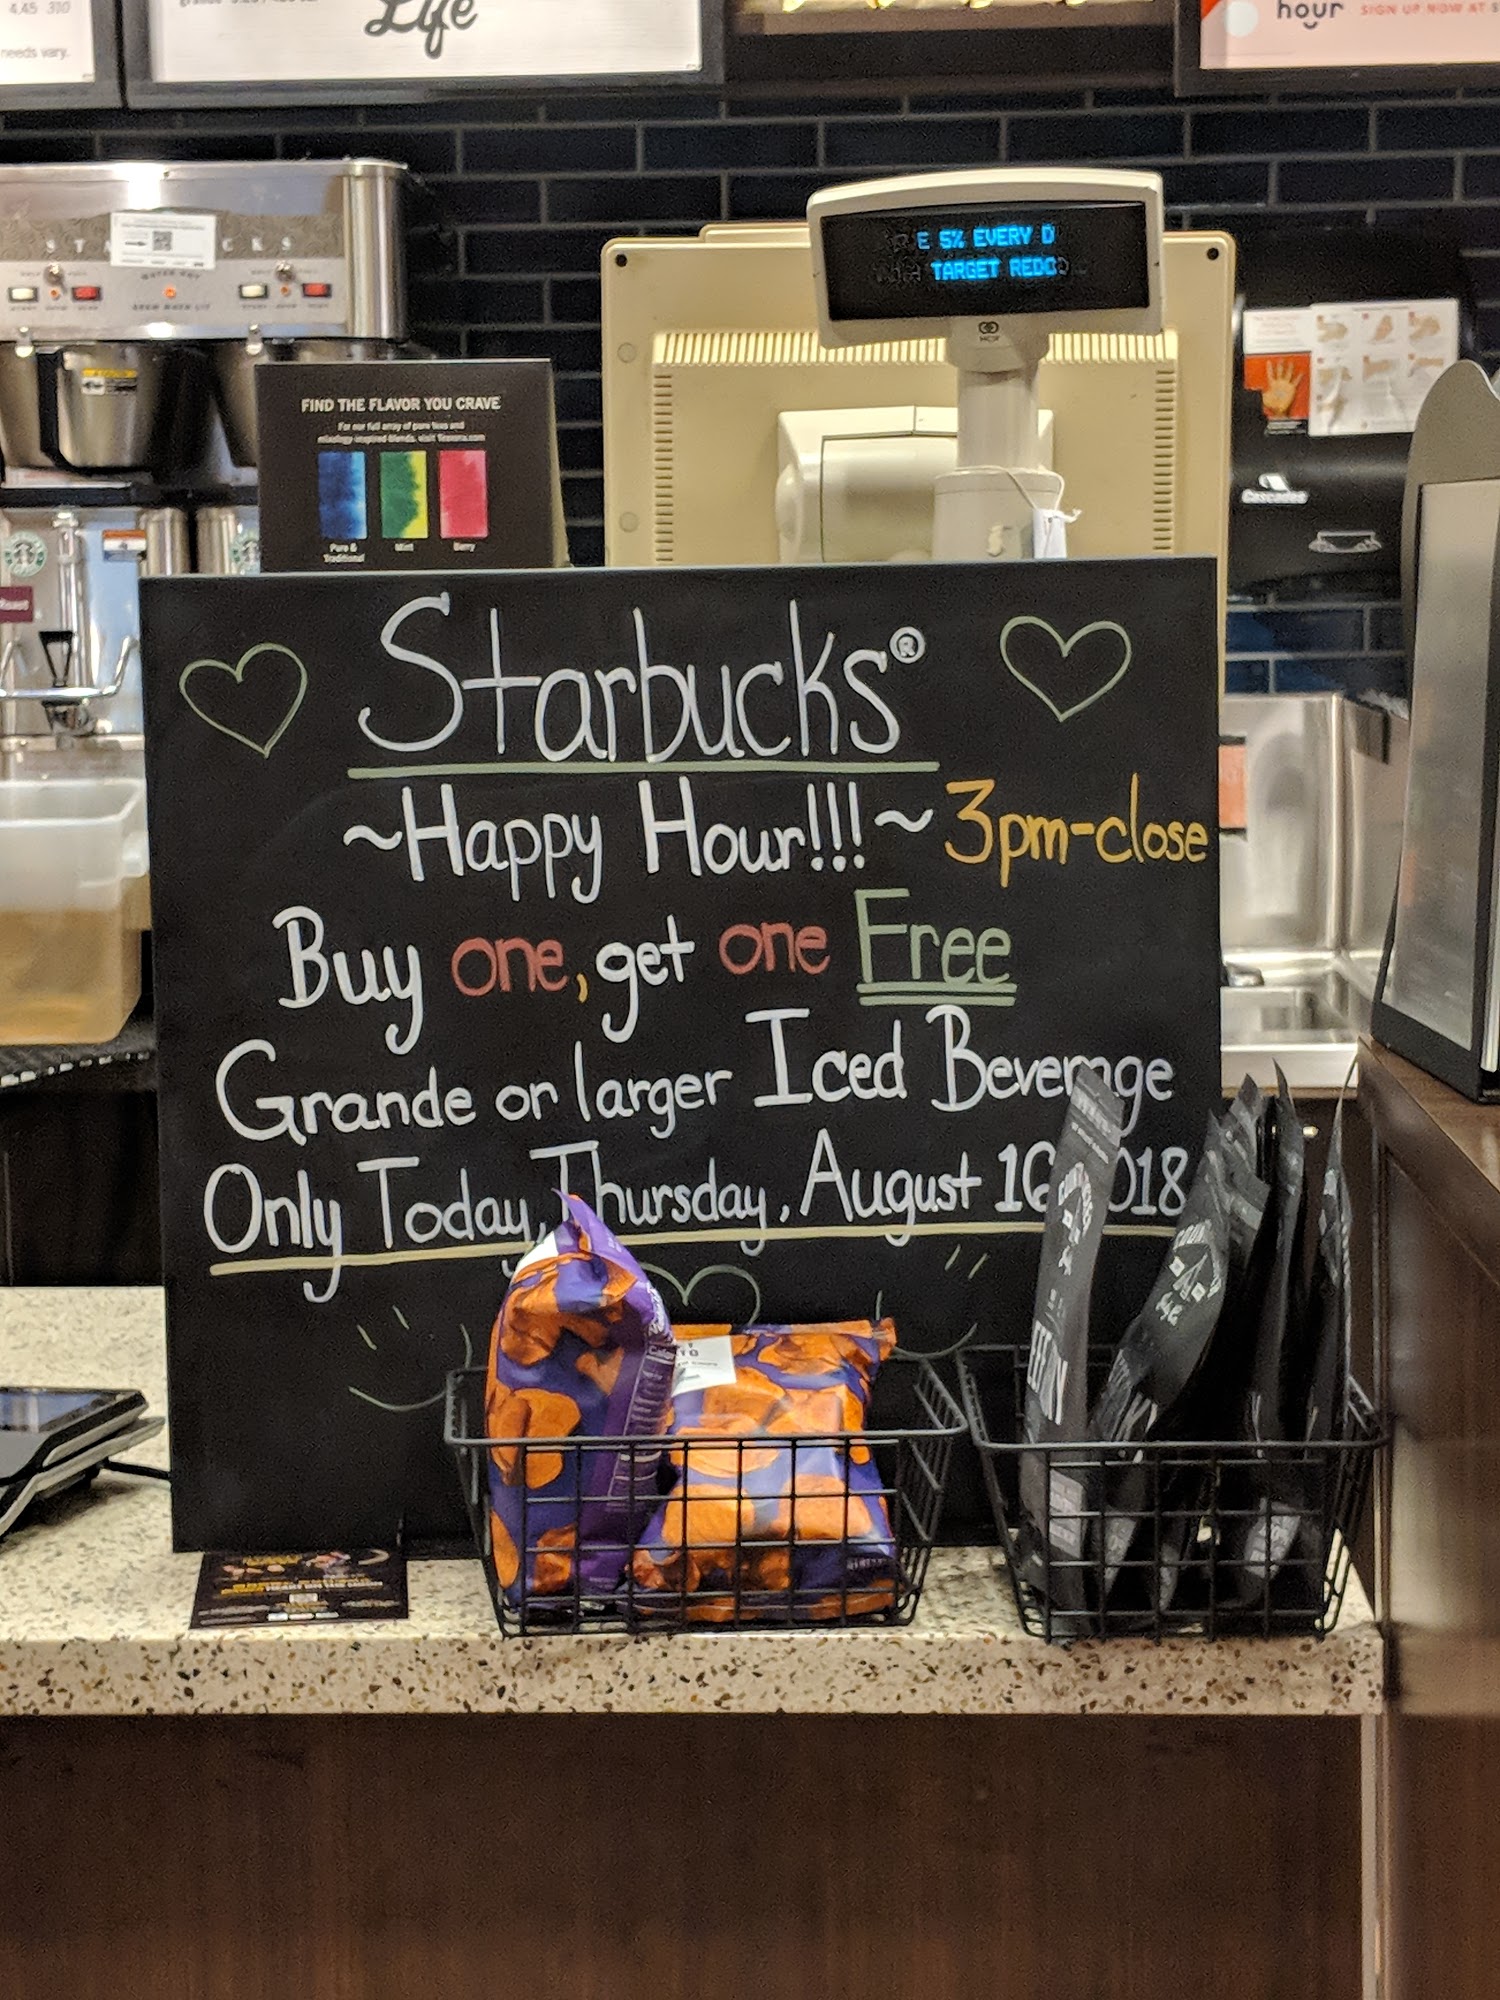 4.45 310
needs vary.
Life
hour SIGN UP NOW AT
E 5% EVERY D
TARGET REDC
FIND THE FLAVOR YOU CRAVE
For our full array of pure teas and
mixology-inspired blends, visit teavana.com
Pure &
Traditional
Mint
Berry
Cascades
Starbucks®
~Happy Hour!!!~ 3pm-close
Buy one, get one Free
Grande or larger Iced Beverage
Only Today, Thursday, August 16 018